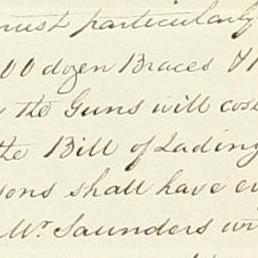 must particularly
00 dozen Braces &
the Guns will cost
the Bill of Lading
sons shall have
Mr Saunders